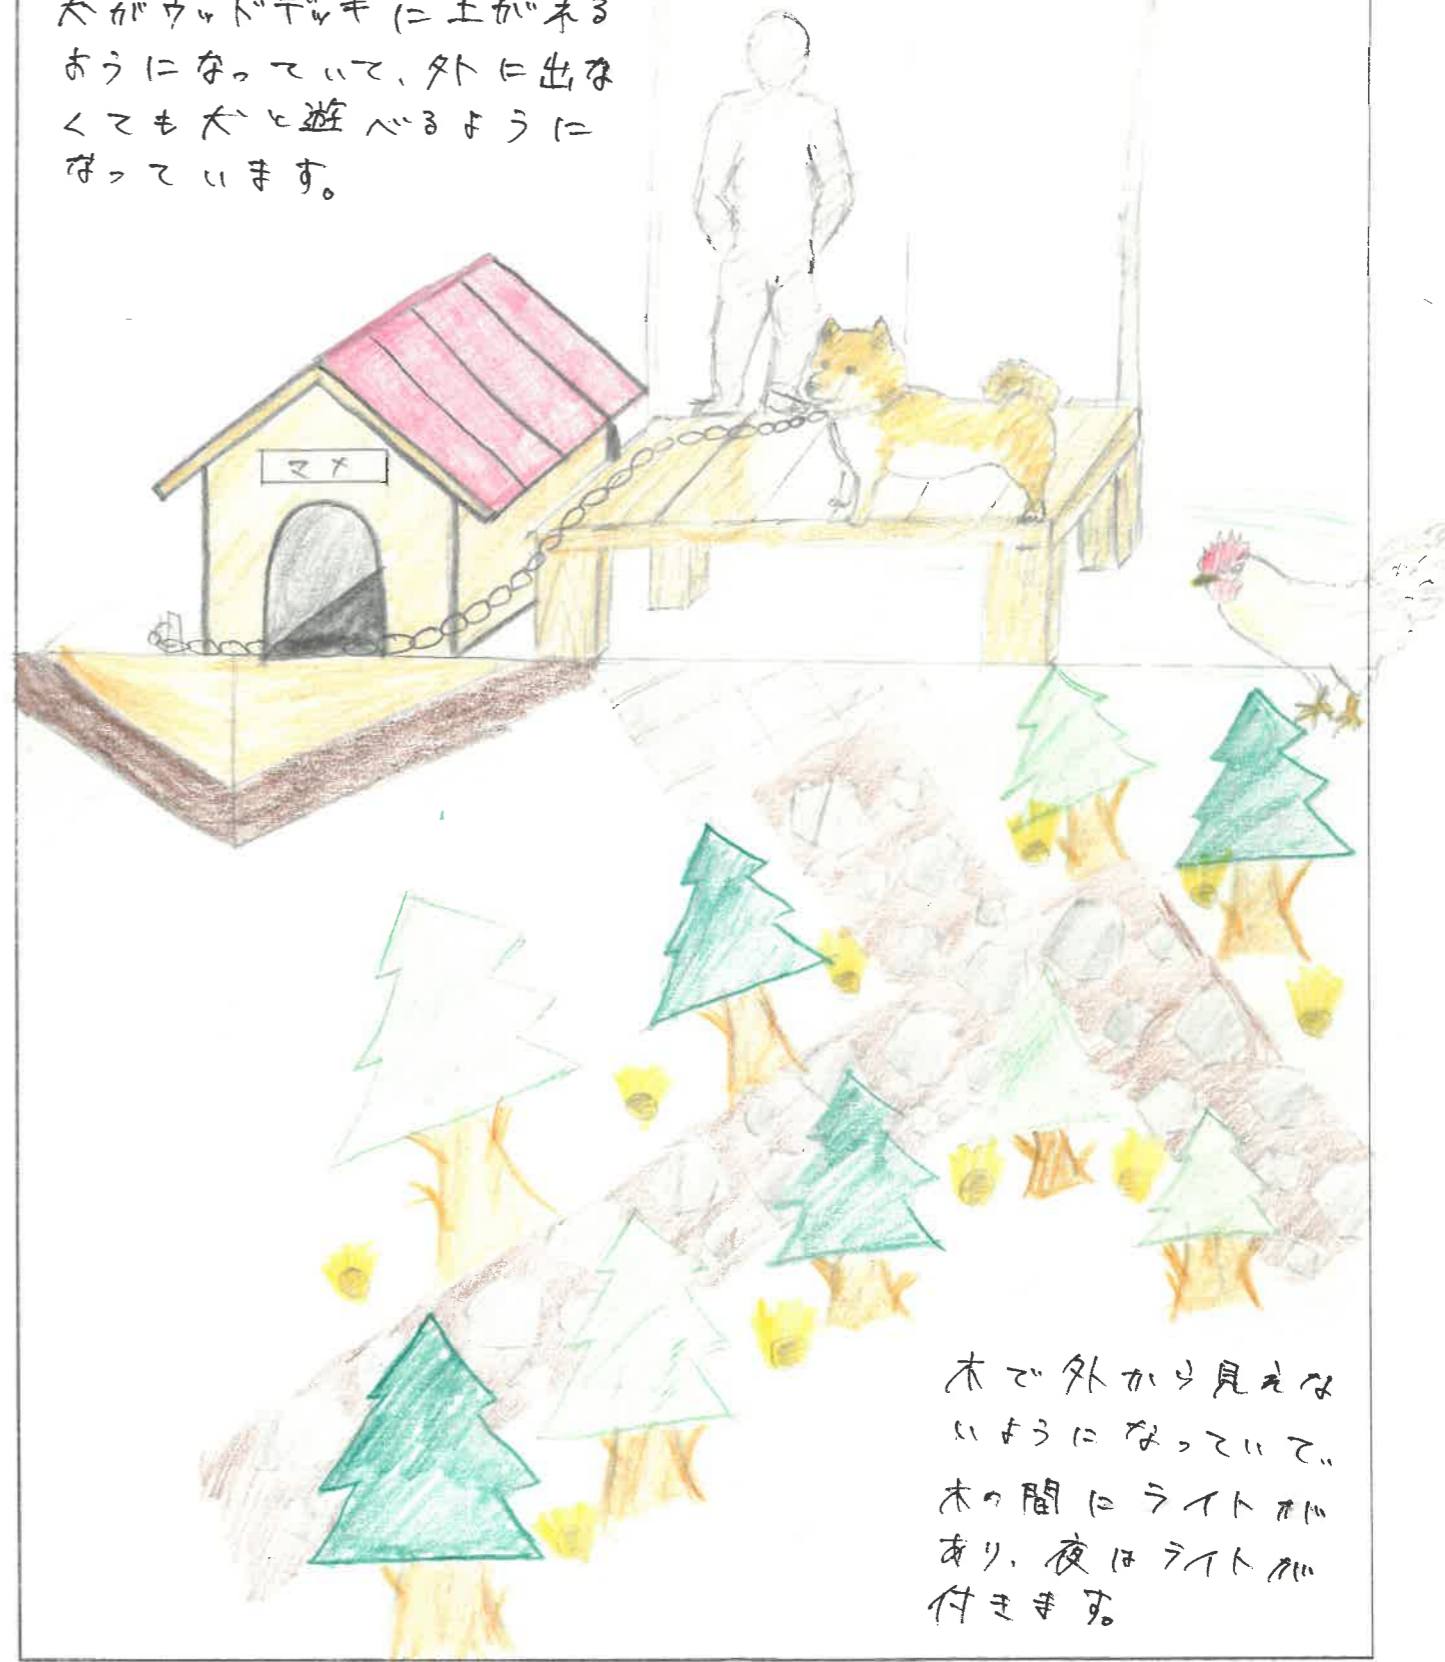 犬がウッドデッキに上がれる
ようになっていて、外に出な
くても犬と遊べるように
なっています。
マメ
木で外から見えな
いようになっていて、
木の間にライトが
あり、夜はライトが
付きます。